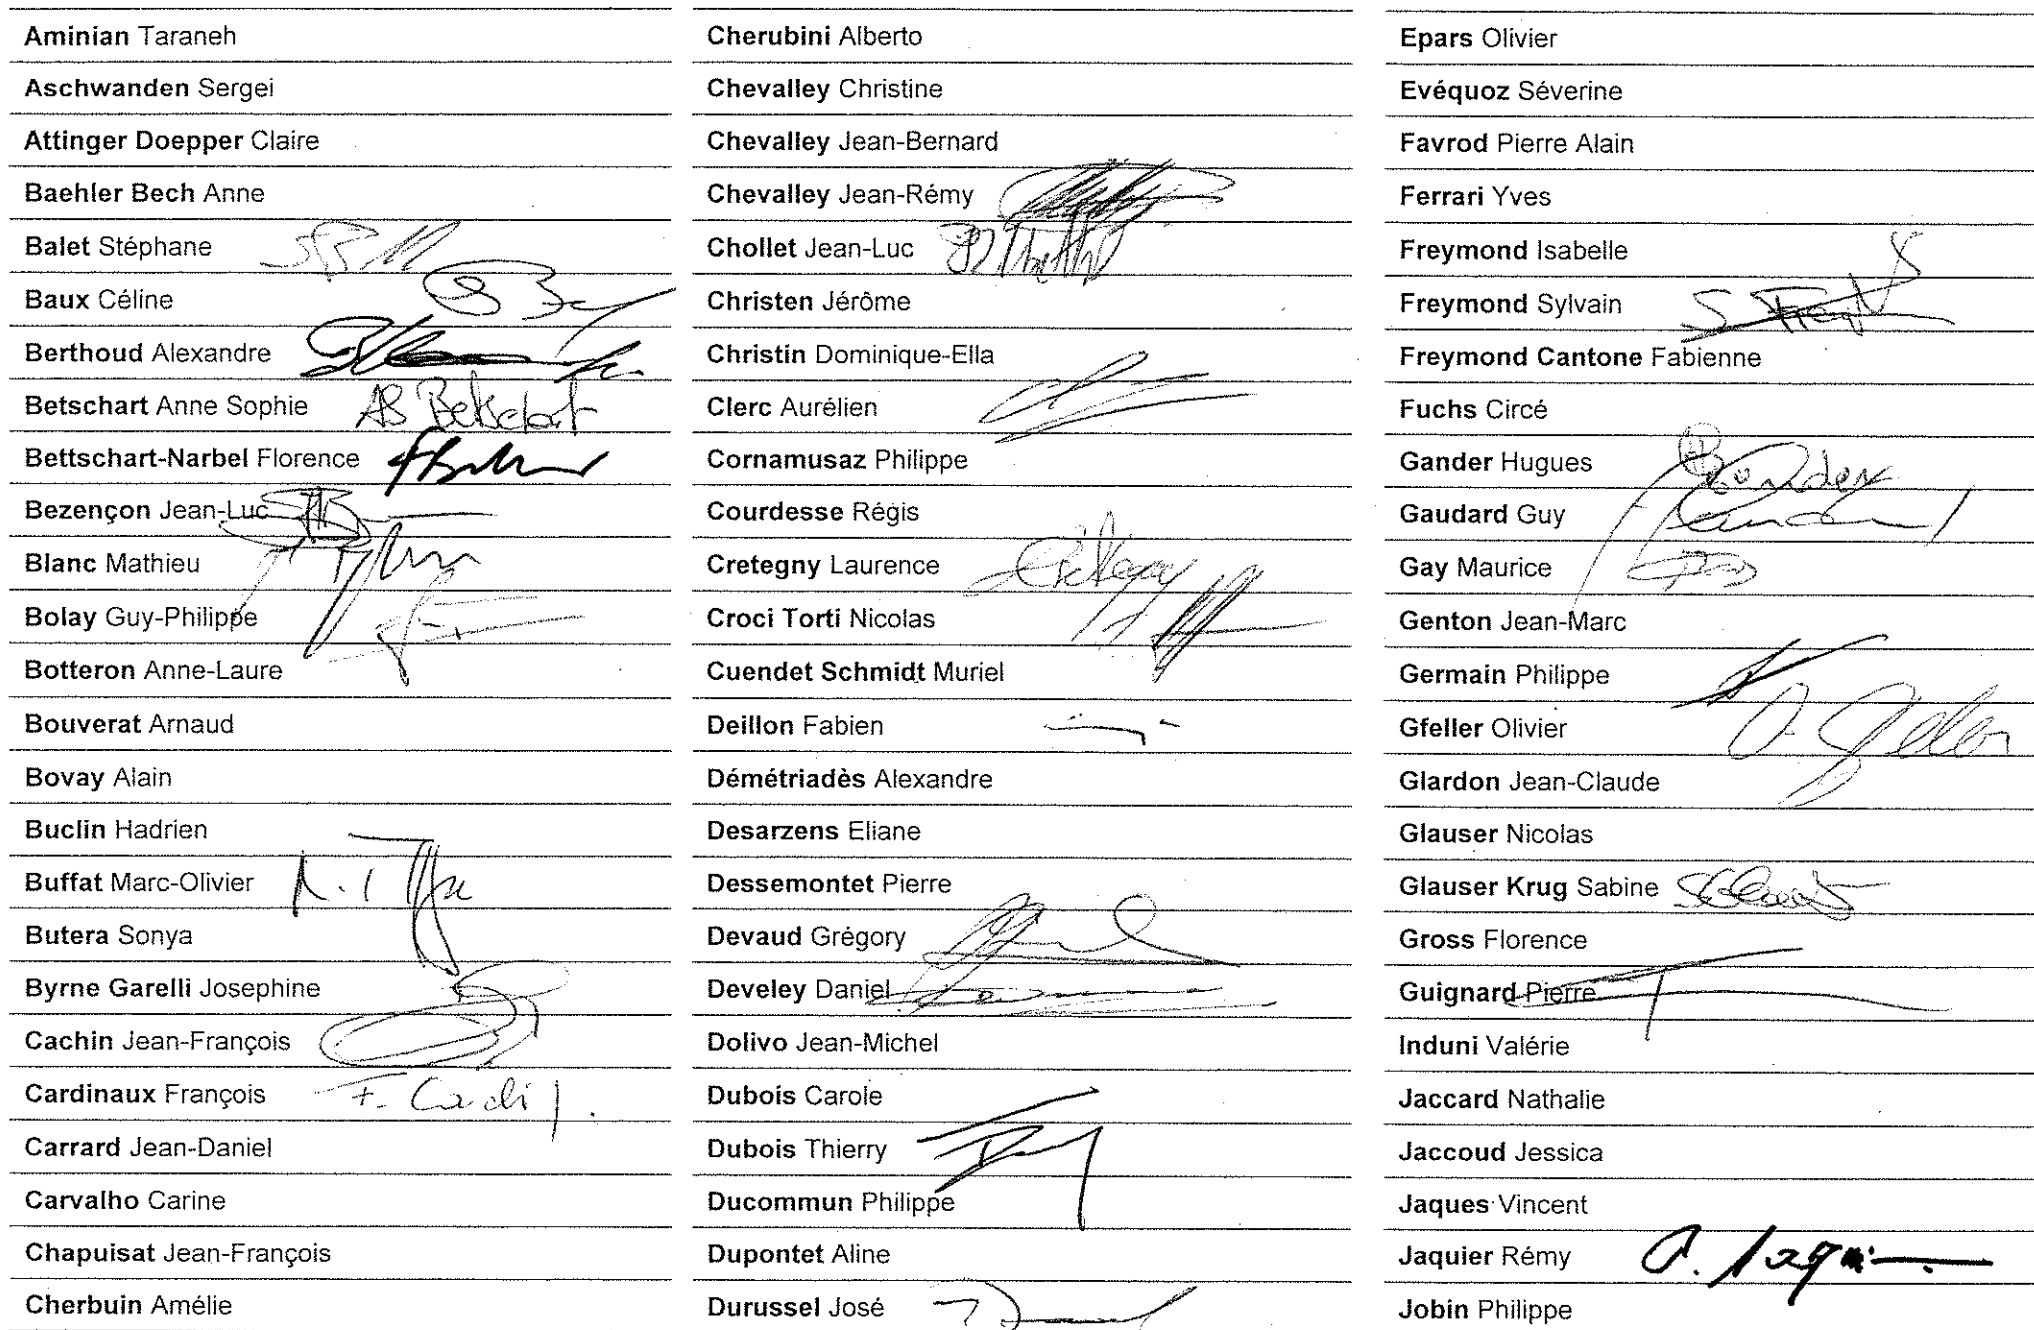 Aminian Taraneh
Aschwanden Sergei
Attinger Doepper Claire
Baehler Bech Anne
Balet Stéphane
Baux Céline
Berthoud Alexandre
Betschart Anne Sophie AS Betschart
Bettschart-Narbel Florence
Bezençon Jean-Luc
Blanc Mathieu
Bolay Guy-Philippe
Botteron Anne-Laure
Bouverat Arnaud
Bovay Alain
Buclin Hadrien
Buffat Marc-Olivier
Butera Sonya
Byrne Garelli Josephine
Cachin Jean-François
Cardinaux François
Carrard Jean-Daniel
Carvalho Carine
Chapuisat Jean-François
Cherbuin Amélie
Cherubini Alberto
Chevalley Christine
Chevalley Jean-Bernard
Chevalley Jean-Rémy
Chollet Jean-Luc
Christen Jérôme
Christin Dominique-Ella
Clerc Aurélien
Cornamusaz Philippe
Courdesse Régis
Cretegny Laurence
Croci Torti Nicolas
Cuendet Schmidt Muriel
Deillon Fabien
Démétriadès Alexandre
Desarzens Eliane
Dessemontet Pierre
Devaud Grégory
Develey Daniel
Dolivo Jean-Michel
Dubois Carole
Dubois Thierry
Ducommun Philippe
Dupontet Aline
Durussel José
Epars Olivier
Evéquoz Séverine
Favrod Pierre Alain
Ferrari Yves
Freymond Isabelle
Freymond Sylvain
Freymond Cantone Fabienne
Fuchs Circé
Gander Hugues
Gaudard Guy
Gay Maurice
Genton Jean-Marc
Germain Philippe
Gfeller Olivier O. Gfeller
Glardon Jean-Claude
Glauser Nicolas
Glauser Krug Sabine
Gross Florence
Guignard Pierre
Induni Valérie
Jaccard Nathalie
Jaccoud Jessica
Jaques Vincent
Jaquier Rémy
Jobin Philippe